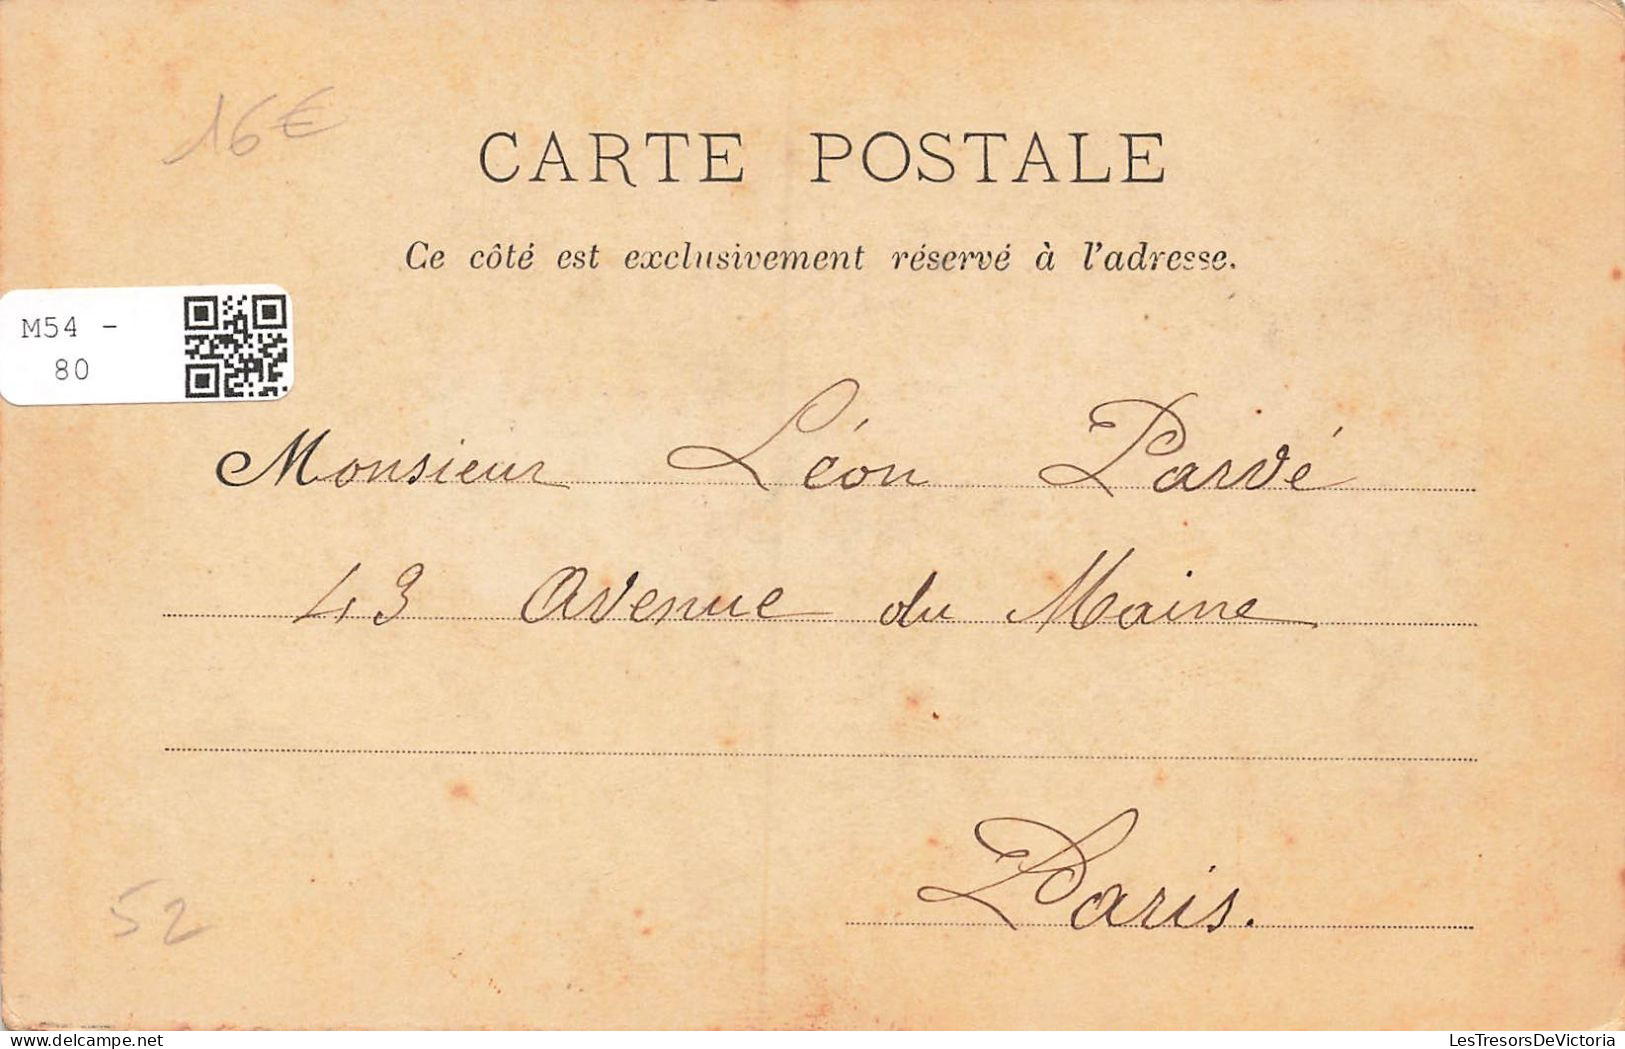 16€
CARTE POSTALE
Ce côté est exclusivement réservé à l'adresse.
M54 -
80
Monsieur Léon Parvé
43 Avenue du Maine
Paris.
52
delcampe.net
LesTresorsDeVictoria